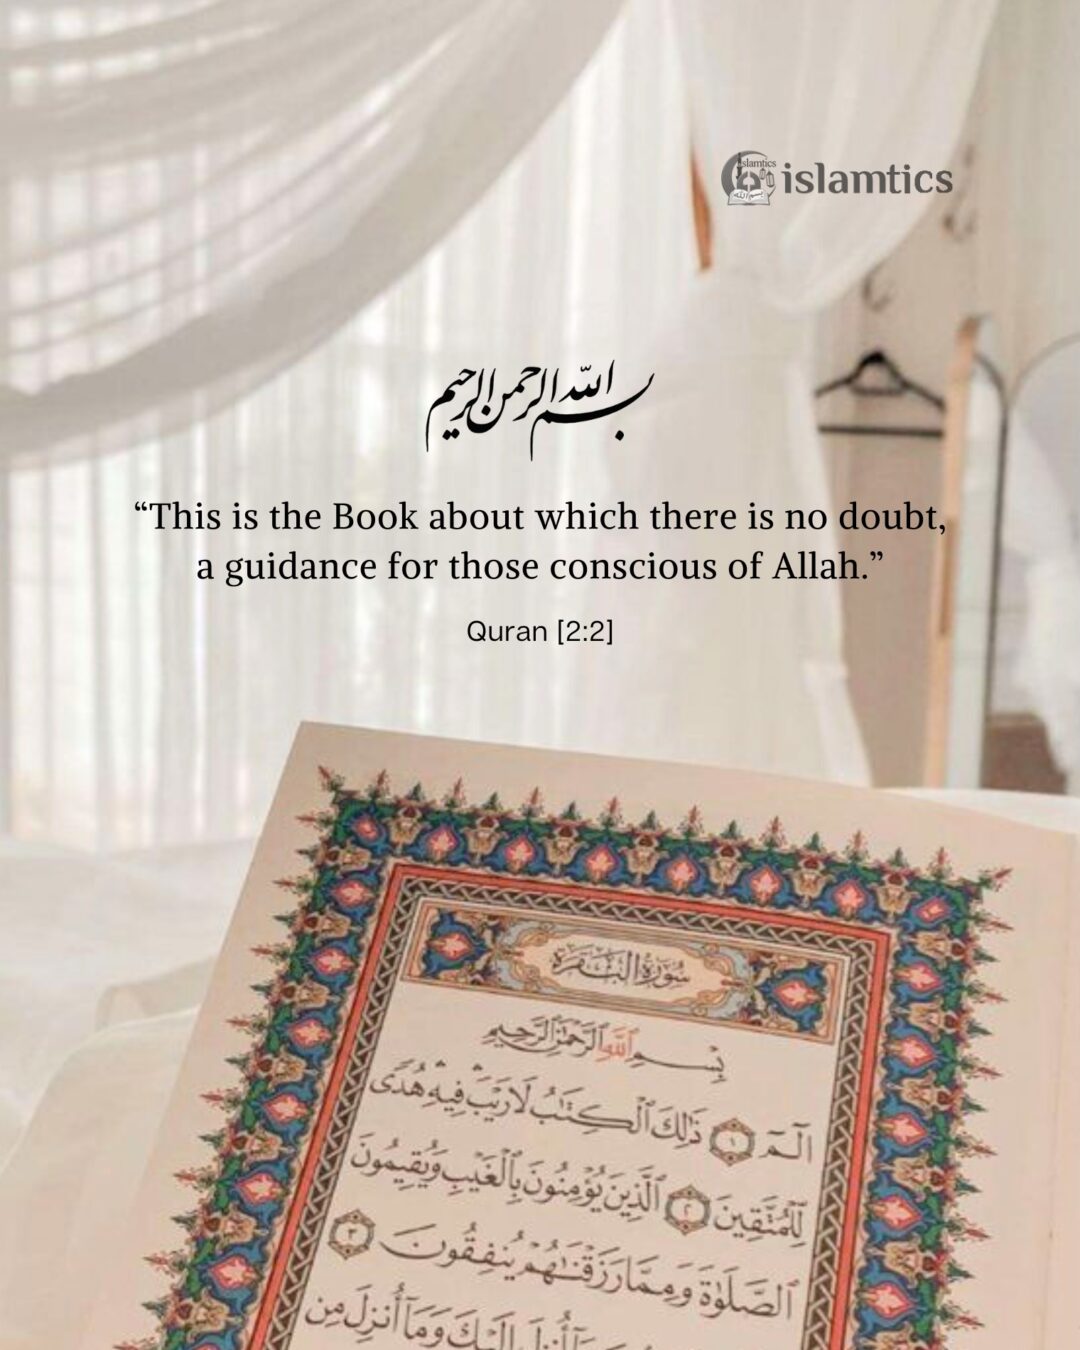 islamtics
بسم الله الرحمن الرحيم
“This is the Book about which there is no doubt,
a guidance for those conscious of Allah.”
Quran [2:2]
سُورَةُ الْبَقَرَةِ
بِسْمِ ٱللَّهِ ٱلرَّحْمَٰنِ ٱلرَّحِيمِ
الٓمٓ ١ ذَٰلِكَ ٱلْكِتَٰبُ لَا رَيْبَ ۛ فِيهِ ۛ هُدًى
لِّلْمُتَّقِينَ ٢ ٱلَّذِينَ يُؤْمِنُونَ بِٱلْغَيْبِ وَيُقِيمُونَ
ٱلصَّلَوٰةَ وَمِمَّا رَزَقْنَٰهُمْ يُنفِقُونَ ٣
إِلَيْكَ وَمَآ أُنزِلَ مِن